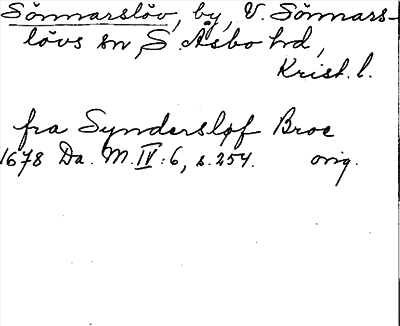 Sönnarslöv, by, V. Sönnars-
lövs sn, S. Åsbo hd,
Krist. l.
fra Syndersløf Broe
1678 Da. M. IV:6, s. 254. orig.